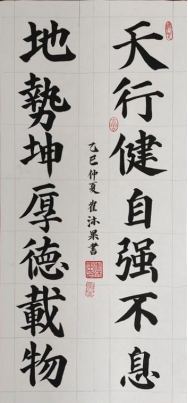 天行健自强不息
地勢坤厚德載物
乙巳仲夏崔沐杲書